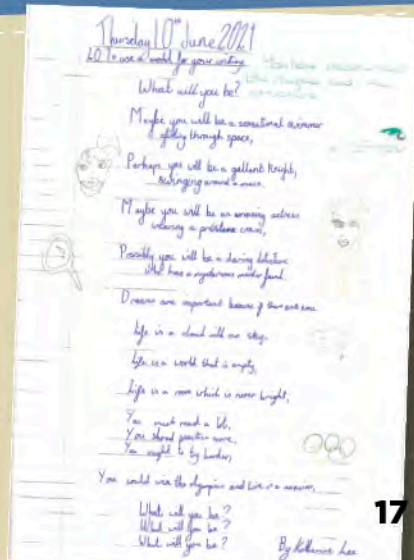 Thursday 10th June 2021
LO To use a model for your writing
What will you be?
Maybe you will be a sensational swimmer
gliding through space,
Perhaps you will be a gallant knight,
swinging around a mace,
Maybe you will be an amazing actress
wearing a priceless crown,
Possibly you will be a daring detective
who has a mysterious murder found.
Dreams are important because if there are none
Life is a cloud with no sky.
Life is a world that is empty,
Life is a room which is never bright,
You must read a lot,
You should practise more,
You ought to try harder,
You could win the olympics and live in a
What will you be?
What will you be?
What will you be?
By Katherine Lee
17